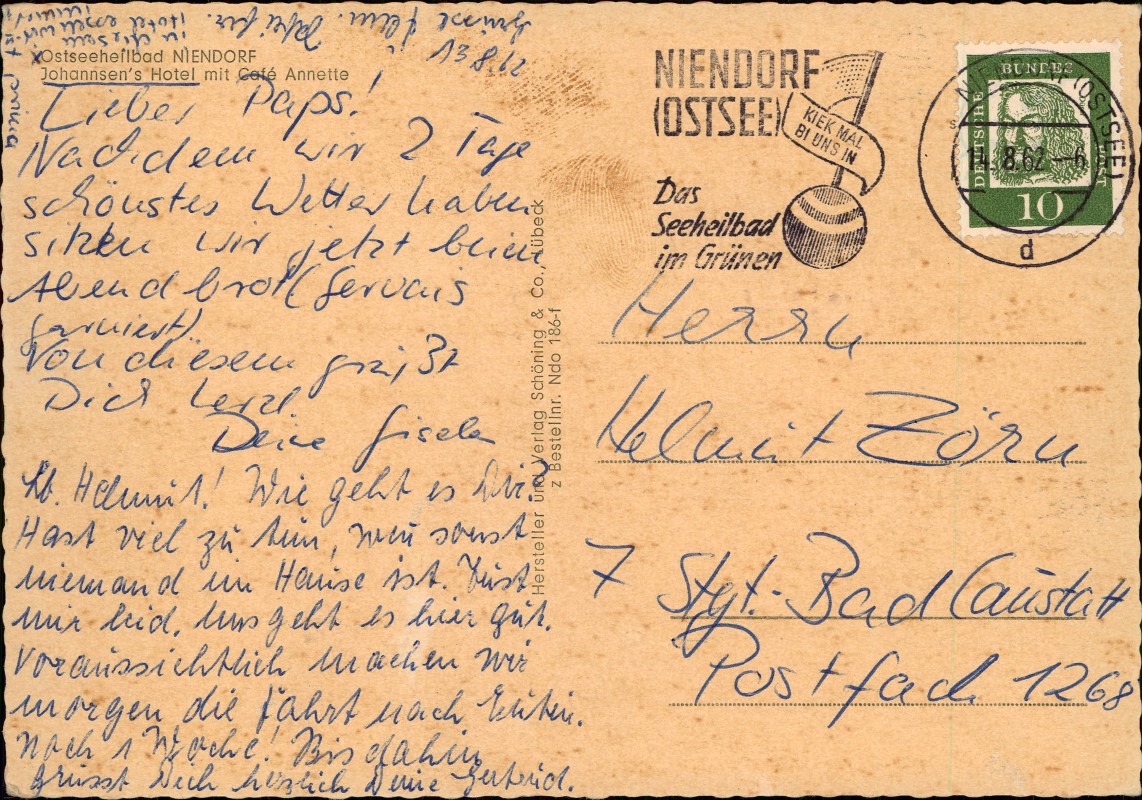 Ostseeheilbad NIENDORF
Johannsen's Hotel mit Café Annette
Lieber Paps!
Nachdem wir 2 Tage
schönstes Wetter haben
sitzen wir jetzt beim
Abendbrot (Gervais
garniert)
Von diesem grüßt
Dich herzl.
Deine Gisela
Lb. Helmut! Wie geht es Dir?
Hast viel zu tun, wenn sonst
niemand im Hause ist. Tust
mir leid. Uns geht es hier gut.
Voraussichtlich machen wir
morgen die Fahrt nach Eutin.
Noch 1 Woche! Bis dahin
Grüsst Dich herzlich Deine Gertrud.
x in diesem
Hotel essen wir
prima
Grüsse
13.8.62
Hersteller und Verlag Schöning & Co., Lübeck
z Bestellnr. Ndo 186-f
NIENDORF
(OSTSEE)
KIEK MAL
BI UNS IN
Das
Seeheilbad
im Grünen
NIENDORF (OSTSEE)
14.8.62-6
d
DEUTSCHE
BUNDES
POST
10
Herrn
Helmut Zörn
7 Stgt.-Bad Cannstatt
Postfach 1268